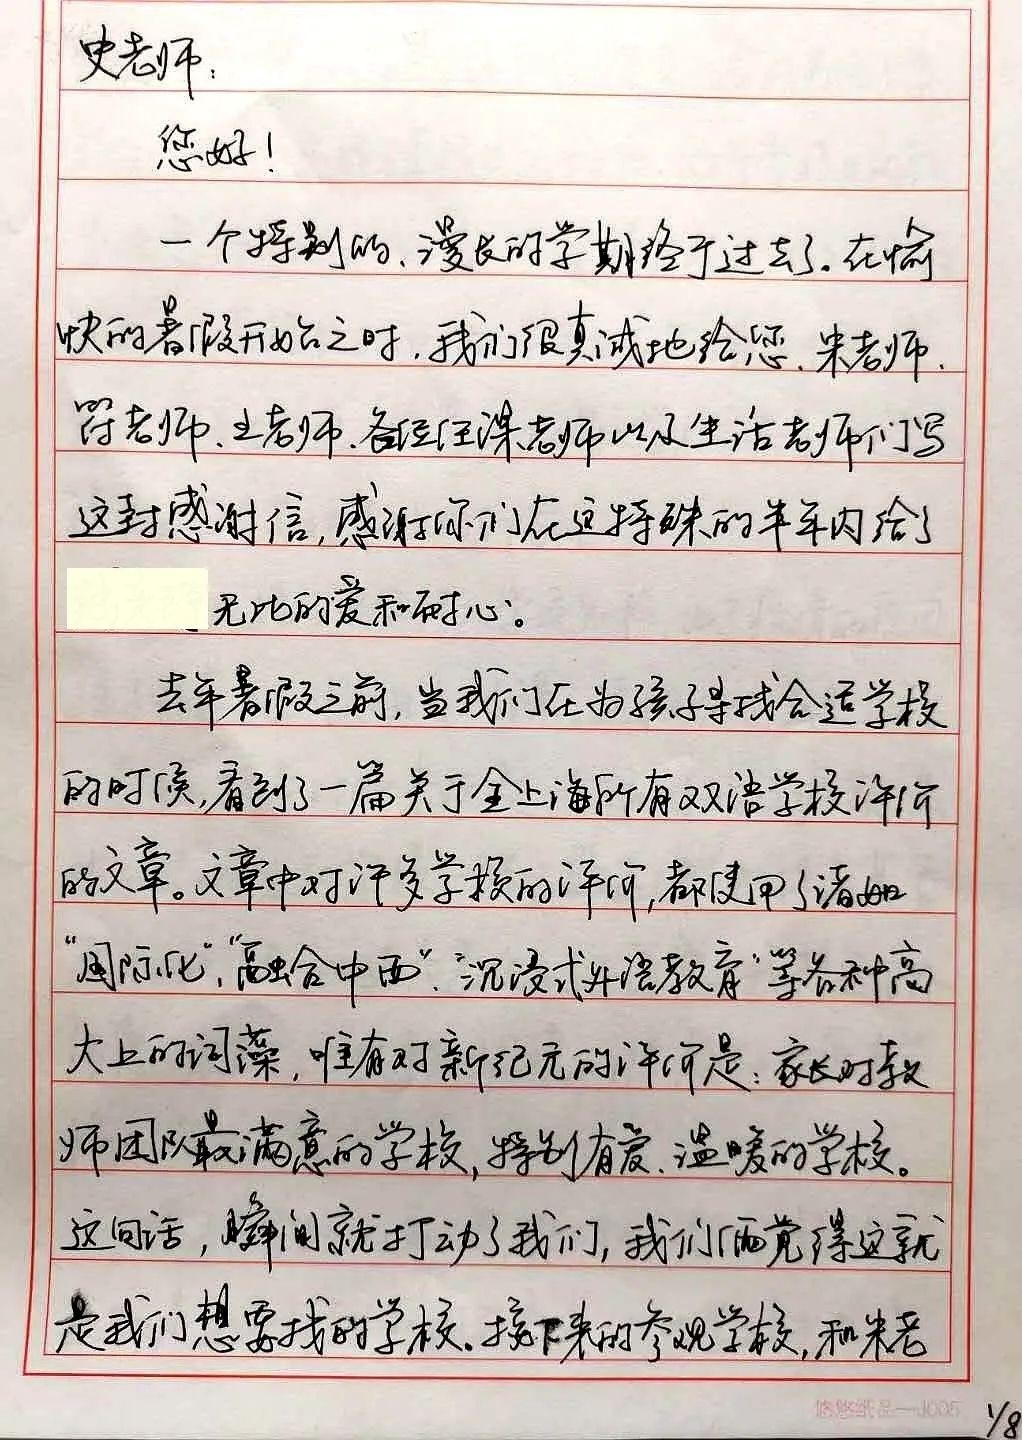 史老师：
您好！
一个特别的、漫长的学期终于过去了。在愉
快的暑假开始之时，我们很真诚地给您、朱老师、
符老师、王老师、各位任课老师以及生活老师们写
这封感谢信，感谢你们在这特殊的半年内给了
无比的爱和耐心。
去年暑假之前，当我们在为孩子寻找合适学校
的时候，看到了一篇关于全上海所有双语学校评价
的文章。文章中对许多学校的评价，都使用了诸如
“国际化”，“融合中西”、“沉浸式外语教育”等各种高
大上的词藻，唯有对新纪元的评价是：家长对教
师团队最满意的学校，特别有爱、温暖的学校。
这句话，瞬间就打动了我们，我们俩觉得这就
是我们想要找的学校。接下来的参观学校，和朱老
1/8